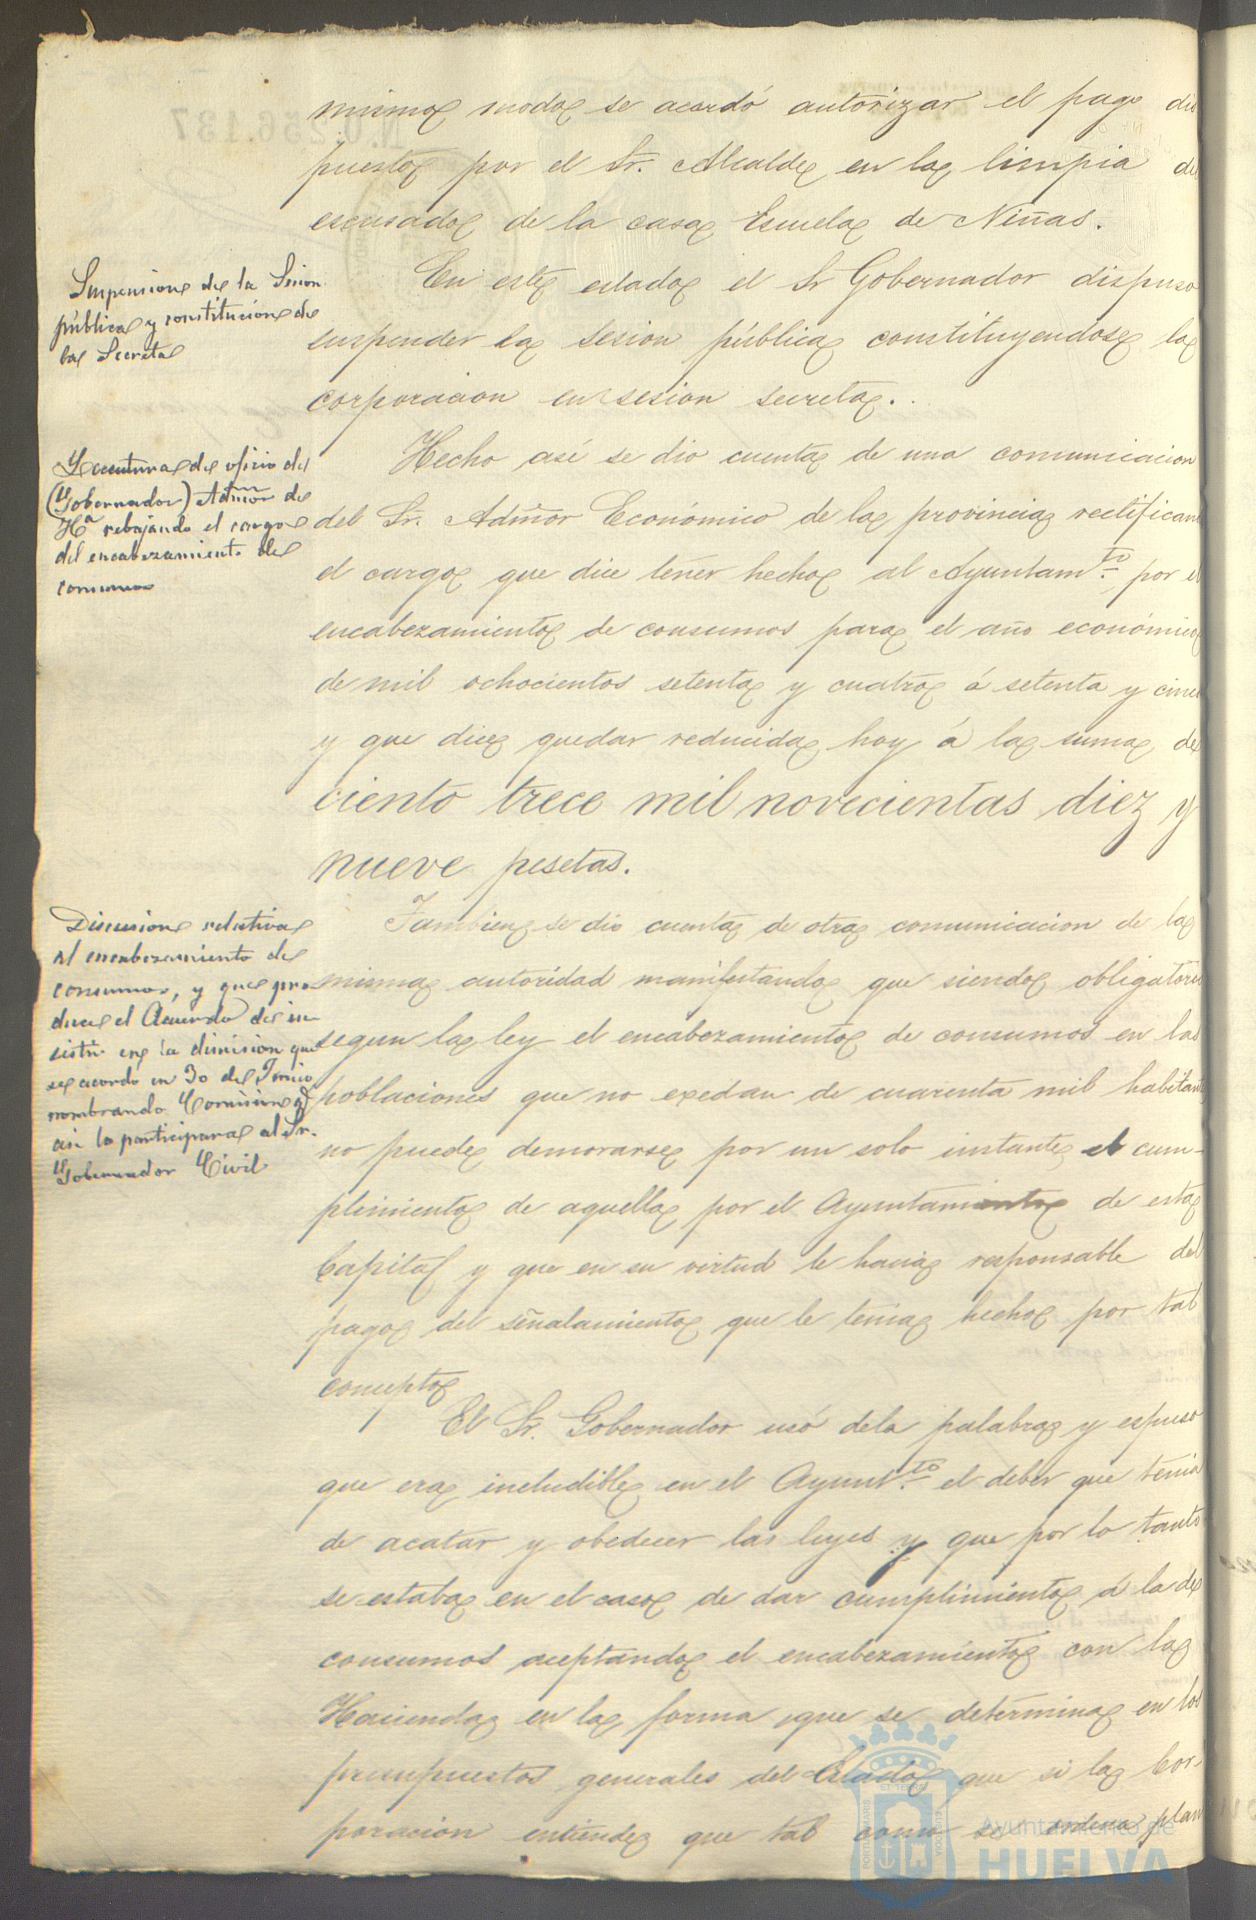 mismo modo se acordó autorizar el pago dis
puesto por el Sr. Alcalde en la limpia del
escusado de la casa Escuela de Niñas.
Suspension de la Sesion
pública y constitucion de
la Secreta
En este estado el Sr Gobernador dispuso
suspender la sesion pública constituyendose la
corporacion en sesion secreta.
Lectura de oficio del
(Gobernador) Admor de
Hª rebajando el cargo
del encabezamiento de
consumos
Hecho así se dio cuenta de una comunicacion
del Sr. Admor Económico de la provincia rectificando
el cargo que dice tener hecho al Ayuntamto. por el
encabezamiento de consumos para el año económico
de mil ochocientos setenta y cuatro á setenta y cinco
y que dice quedar reducida hoy á la suma de
ciento trece mil novecientas diez y
nueve pesetas.
Discusion relativa
al encabezamiento de
consumos, y que pro
duce el Acuerdo de in
sistir en la dimision que
se acordo en 30 de Junio
nombrando Comision q
asi lo participara al Sr.
Gobernador Civil
Tambien se dio cuenta de otra comunicacion de la
misma autoridad manifestando que siendo obligatorio
segun la ley el encabezamiento de consumos en las
poblaciones que no exedan de cuarenta mil habitantes
no puede demorarse por un solo instante el cum-
plimiento de aquella por el Ayuntamiento de esta
Capital y que en su virtud le hacia responsable del
pago del señalamiento que le tenia hecho por tal
concepto
El Sr. Gobernador usó dela palabra y espuso
que era ineludible en el Ayuntto. el deber que tenia
de acatar y obedecer las leyes y que por lo tanto
se estaba en el caso de dar cumplimiento á la de
consumos aceptando el encabezamiento con la
Hacienda en la forma que se determina en los
presupuestos generales del Estado que si la Cor-
poracion entiende que tal como se ordena plan
Ayuntamiento de
HUELVA